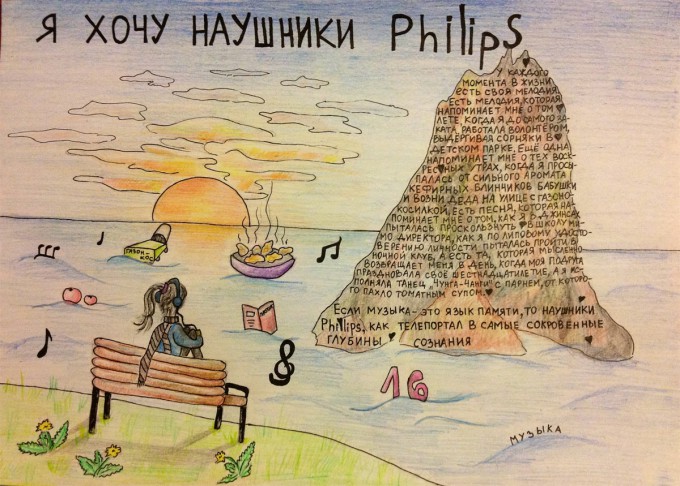 Я ХОЧУ НАУШНИКИ Philips
У КАЖДОГО
МОМЕНТА В ЖИЗНИ
ЕСТЬ СВОЯ МЕЛОДИЯ.
ЕСТЬ МЕЛОДИЯ, КОТОРАЯ
НАПОМИНАЕТ МНЕ О ТОМ
ЛЕТЕ, КОГДА Я ДО САМОГО ЗА-
КАТА, РАБОТАЛА ВОЛОНТЁРОМ,
ВЫДЁРГИВАЯ СОРНЯКИ В
ДЕТСКОМ ПАРКЕ, ЕЩЁ ОДНА
НАПОМИНАЕТ МНЕ О ТЕХ ВОСК-
РЕСНЫХ УТРАХ, КОГДА Я ПРОСЫ-
ПАЛАСЬ ОТ СИЛЬНОГО АРОМАТА
КЕФИРНЫХ БЛИННИКОВ БАБУШКИ
И ВОЗНИ ДЕДА НА УЛИЦЕ С ГАЗОНО-
КОСИЛКОЙ, ЕСТЬ ПЕСНЯ, КОТОРАЯ НА-
ПОМИНАЕТ МНЕ О ТОМ, КАК Я В ДЖИНСАХ
ПЫТАЛАСЬ ПРОСКОЛЬЗНУТЬ В ШКОЛУ МИ-
МО ДИРЕКТОРА, КАК Я ПО ЛИПОВОМУ УДОСТО-
ВЕРЕНИЮ ЛИЧНОСТИ ПЫТАЛАСЬ ПРОЙТИ В
НОЧНОЙ КЛУБ, А ЕСТЬ ТА, КОТОРАЯ МЫСЛЕННО
ВОЗВРАЩАЕТ МЕНЯ В ДЕНЬ, КОГДА МОЯ ПОДРУГА
ПРАЗДНОВАЛА СВОЁ ШЕСТНАДЦАТИЛЕТИЕ, А Я ИС-
ПОЛНЯЛА ТАНЕЦ „ЧУНГА-ЧАНГИ" С ПАРНЕМ, ОТ КОТОРО-
ГО ПАХЛО ТОМАТНЫМ СУПОМ.
ЕСЛИ МУЗЫКА - ЭТО ЯЗЫК ПАМЯТИ, ТО НАУШНИКИ
Philips, КАК ТЕЛЕПОРТАЛ В САМЫЕ СОКРОВЕННЫЕ
ГЛУБИНЫ СОЗНАНИЯ
16
МУЗЫКА